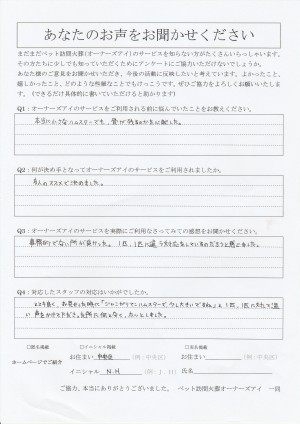 あなたのお声をお聞かせください
まだまだペット訪問火葬(オーナーズアイ)のサービスを知らない方がたくさんいらっしゃいます。
その方たちに少しでも知っていただくためにアンケートにご協力いただけないでしょうか。
あなた様のご意見をお聞かせいただき、今後の活動に反映したいと考えています。よかったこと、
嬉しかったこと、どのような些細なことでもけっこうです。ぜひご協力をよろしくお願いいたしま
す。(できるだけ具体的に書いていただけると助かります)
Q1：オーナーズアイのサービスをご利用される前に悩んでいたことをお教えください。
本当に小さなハムスターでも、骨が残るのか心配した。
Q2：何が決め手となってオーナーズアイのサービスをご利用されましたか。
友人のススメで決めました。
Q3：オーナーズアイのサービスを実際にご利用なさってみての感想をお聞かせください。
事務的でない所が良かった。1匹、1匹に違う対応をしているのだろうと感じました。
Q4：対応したスタッフの対応はいかがでしたか。
とても良く、お骨をした時に「ジャンガリアンハムスターで、
□匿名掲載 □イニシャル掲載 □実名掲載
ホームページでご紹介
お住まい 中央区 (例：中央区) お住まい (例：中央区)
イニシャル N.H (例：I．H) 氏名
ご協力、本当にありがとうございました。 ペット訪問火葬オーナーズアイ 一同